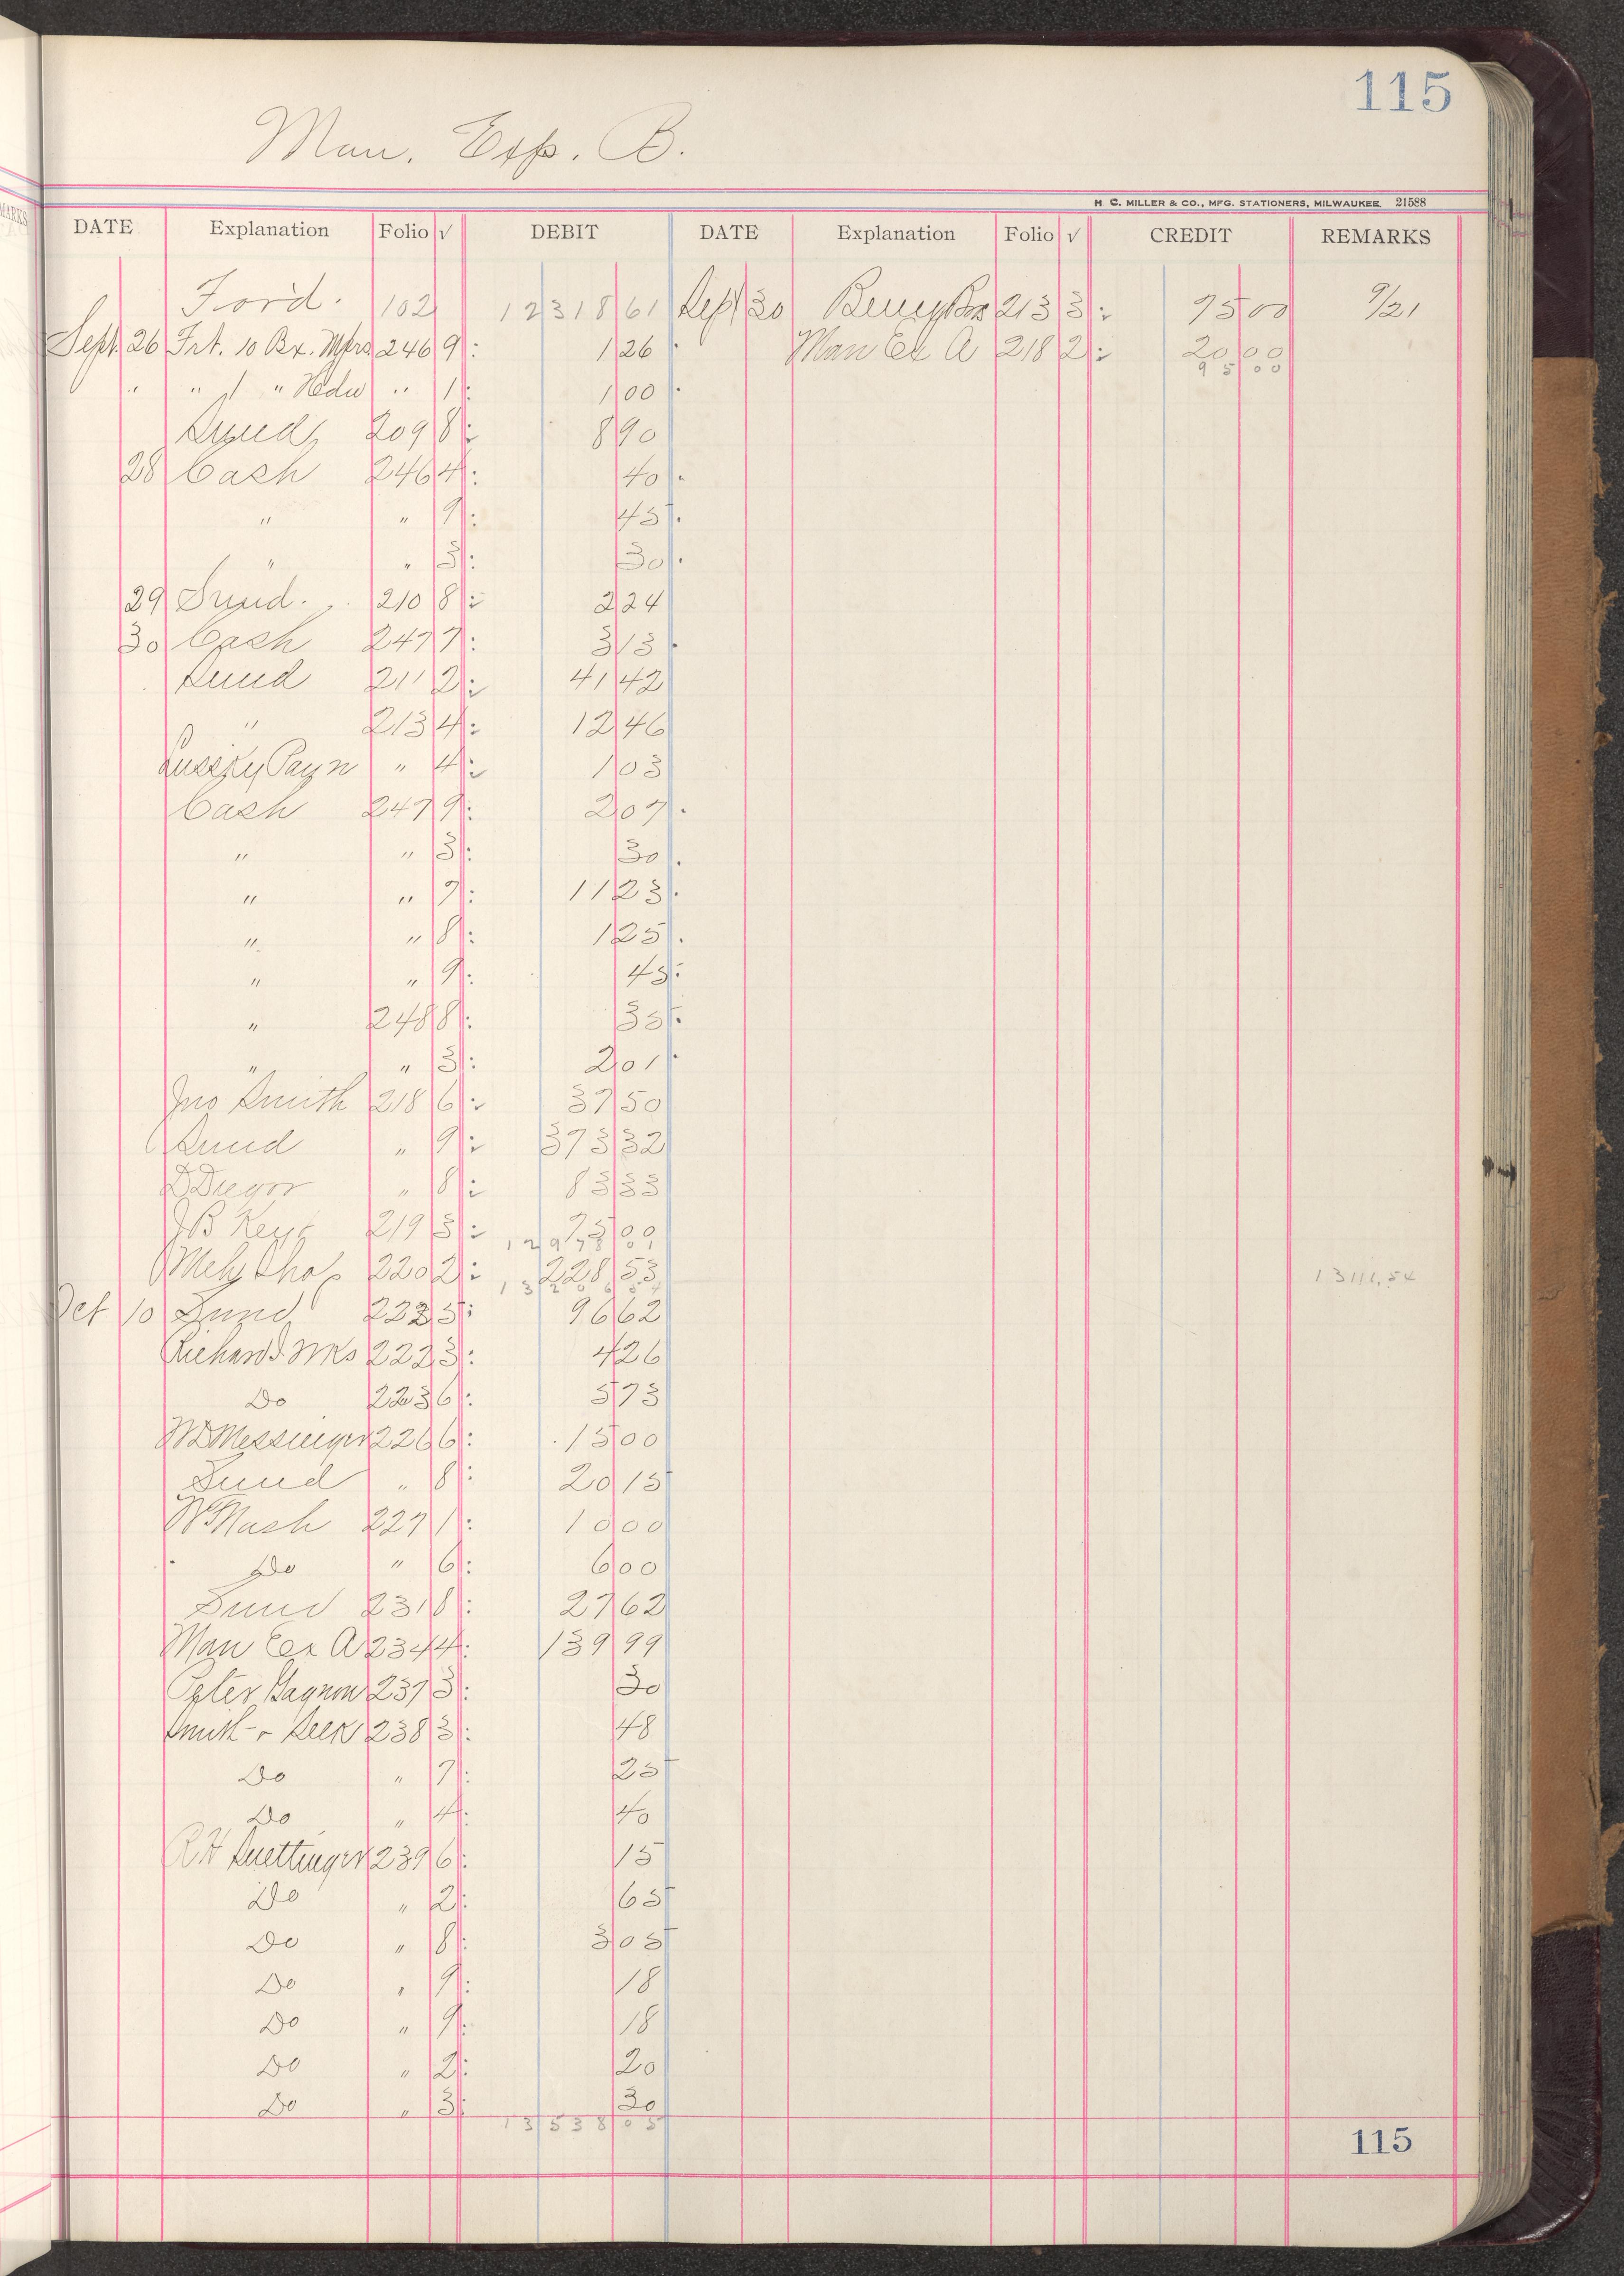 115
Man. Exp. B.
H. C. MILLER & CO., MFG. STATIONERS, MILWAUKEE 21588
DATE Explanation Folio √ DEBIT DATE Explanation Folio √ CREDIT REMARKS
Ford. 102 12318 61 Sept 30 213 3 75 00 9/21
Sept. 26 Frt. 10 Bx. Mfrs 246 9 1 26 Man Ex A 218 2 20 00
95 00
" " 1 " Hdw " 1 1 00
Sund, 209 8 8 90
28 Cash 246 4 40
" " 9 45
" " 3 30
29 Sund. 210 8 2 24
30 Cash 247 7 3 13
Sund 211 2 41 42
" 213 4 12 46
" 4 1 03
Cash 247 9 2 07
" " 3 30
" " 7 11 23
" " 8 1 25
" " 9 45
" 248 8 35
" " 3 2 01
Jno Smith 218 6 37 50
Sund " 9 373 32
" 8 83 33
219 3 75 00
220 2 228 53
13111.54
Oct 10 Sund 222 5 96 62
Richards Wks 222 3 4 26
Do 223 6 5 73
Messinger 226 6 15 00
Sund " 8 20 15
Nash 227 1 10 00
Do " 6 6 00
Sund 231 8 27 62
Man Ex A 234 4 139 99
Peter Gagnon 237 3 30
238 3 48
Do " 7 25
Do " 4 40
239 6 15
Do " 2 65
Do " 8 3 05
Do " 9 18
Do " 9 18
Do " 2 20
Do " 3 30
13538 05
115